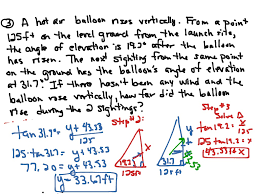 ③ A hot air balloon rises vertically. From a point
125ft on the level ground from the launch side,
the angle of elevation is 19.2° after the balloon
has risen. The next sighting from the same point
on the ground has the balloon's angle of elevation
at 31.7°. If there hasn't been any wind and the
balloon rose vertically, how far did the balloon
rise during the 2 sightings?
Step #2:
tan 31.7° = y + 43.53
125
125·tan 31.7 = y + 43.53
77.20 = y + 43.53
y = 33.67 ft
19.2
x
125ft
y
x
31.7
125ft
Step #3
Solve Δ
tan 19.2 = x
125
125 tan 19.2 = x
43.53ft = x